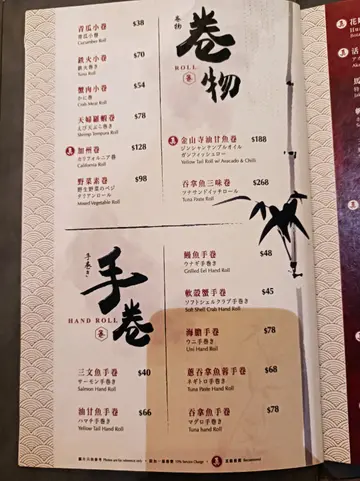 青瓜小卷 $38
青瓜小卷
Cucumber Roll
鉄火小卷 $70
鉄火巻き
Tuna Roll
蟹肉小卷 $54
かに巻き
Crab Meat Roll
天婦羅蝦卷 $78
えび天ぷら巻き
Shrimp Tempura Roll
加州卷 $128
カリフォルニア巻
California Roll
野菜素卷 $98
野生野菜のベジ
タリアンロール
Mixed Vegetable Roll
卷物
卷物
ROLL
金山寺油甘魚卷 $188
ジンシャンテンプルオイル
ガンフィッシュロー
Yellow Tail Roll w/ Avocado & Chili
吞拿魚三味卷 $268
ツナサンドイッチロール
Tuna Paste Roll
手巻き
手卷
HAND ROLL
三文魚手卷 $40
サーモン手巻き
Salmon Hand Roll
油甘魚手卷 $66
ハマチ手巻き
Yellow Tail Hand Roll
鰻魚手卷 $48
ウナギ手巻き
Grilled Eel Hand Roll
軟殼蟹手卷 $45
ソフトシェルクラブ手巻き
Soft Shell Crab Hand Roll
海膽手卷 $78
ウニ手巻き
Uni Hand Roll
蔥吞拿魚蓉手卷 $68
ネギトロ手巻き
Tuna Paste Hand Roll
吞拿魚手卷 $78
マグロ手巻き
Tuna hand Roll
圖片只供參考 Photos are for reference only. ・ 另加一服務費 10% Service Charge ・